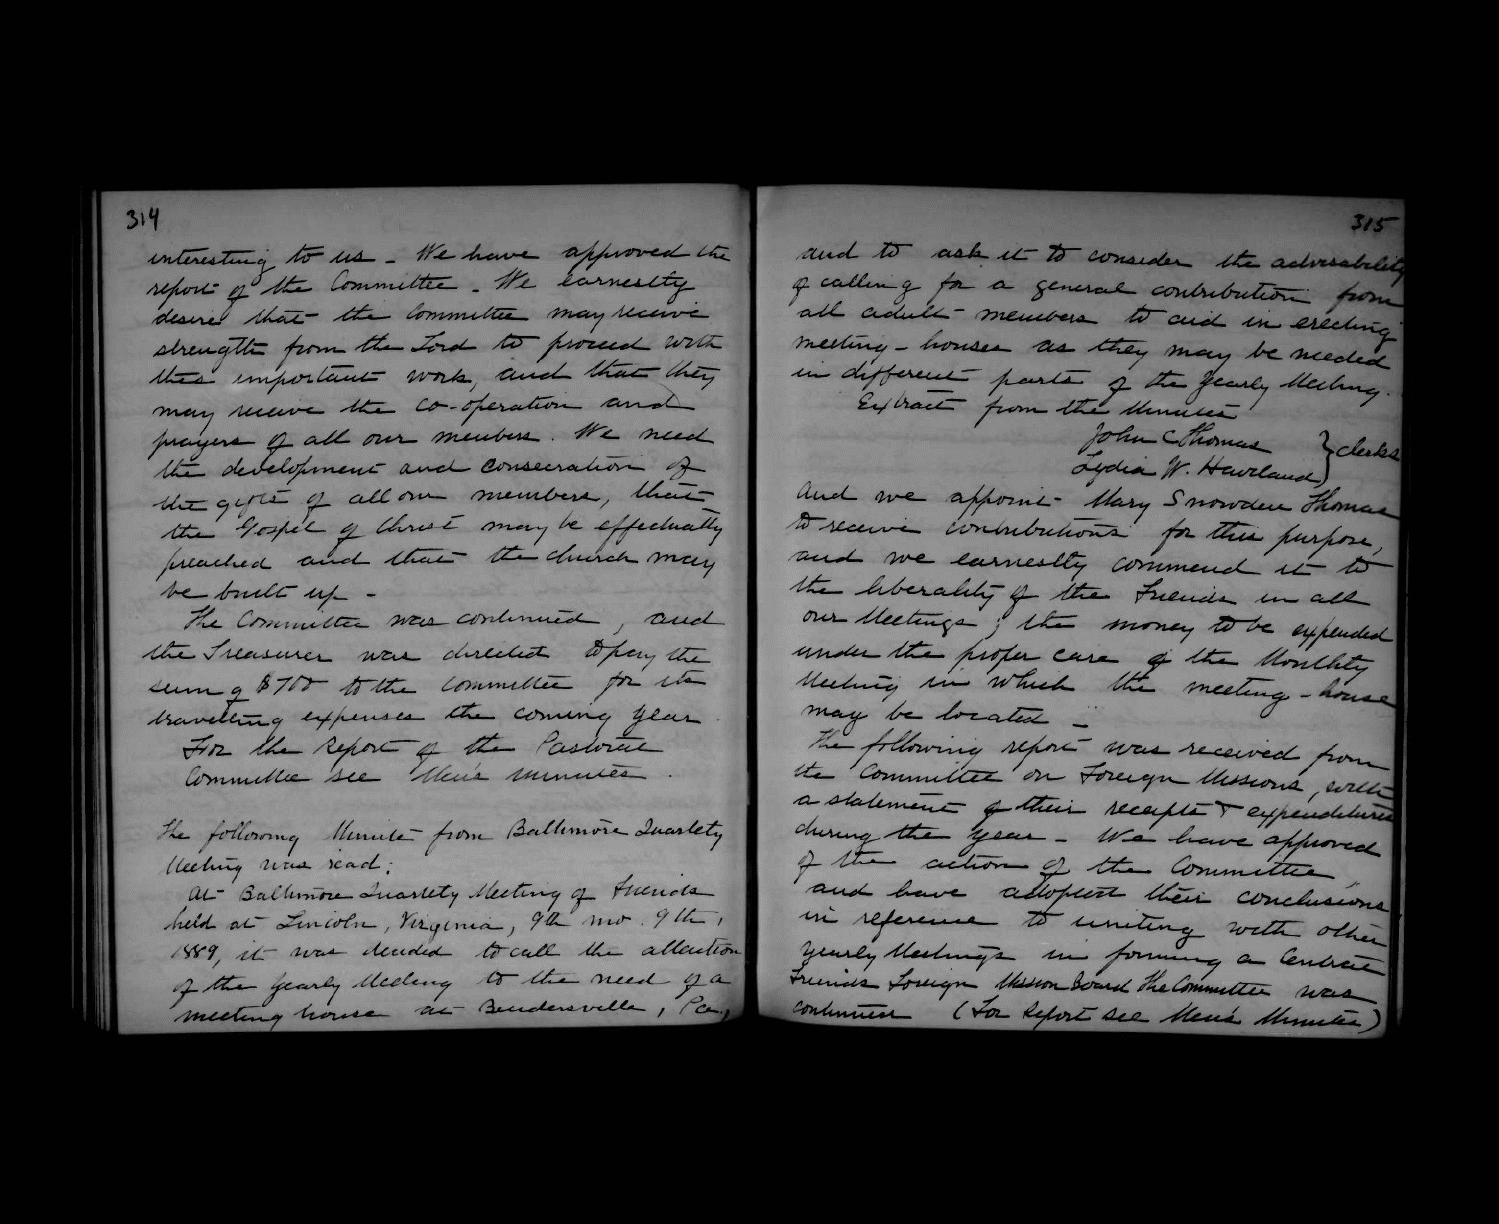 314
interesting to us - We have approved the
report of the Committee - We earnestly
desire that the Committee may receive
strength from the Lord to proceed with
this important work, and that they
may receive the co-operation and
prayers of all our members. We need
the development and consecration of
the gifts of all our members, that
the Gospel of Christ may be effectually
preached and that the church may
be built up -
The Committee was continued, and
the Treasurer was directed to pay the
sum of $700 to the Committee for its
travelling expenses the coming year
For the Report of the Pastoral
Committee see Men's minutes.
The following Minute from Baltimore Quarterly
Meeting was read:
At Baltimore Quarterly Meeting of Friends
held at Lincoln, Virginia, 9th mo. 9th,
1889, it was decided to call the attention
of the Yearly Meeting to the need of a
meeting house at Bendersville, Pa.,
315
and to ask it to consider the advisability
of calling for a general contribution from
all adult members to aid in erecting
meeting-houses as they may be needed
in different parts of the Yearly Meeting.
Extract from the Minutes
John C Thomas } clerks
Lydia W. Haviland
And we appoint Mary Snowden Thomas
to receive contributions for this purpose,
and we earnestly commend it to
the liberality of the Friends in all
our Meetings; the money to be expended
under the proper care of the Monthly
Meeting in which the meeting-house
may be located -
The following report was received from
the Committee on Foreign Missions, with
a statement of their receipts & expenditures
during the year - We have approved
of the action of the Committee,
and have adopted their conclusions
in reference to uniting with other
Yearly Meetings in forming a Central
Friends Foreign Mission Board The Committee was
continued (For Report see Men's Minutes)